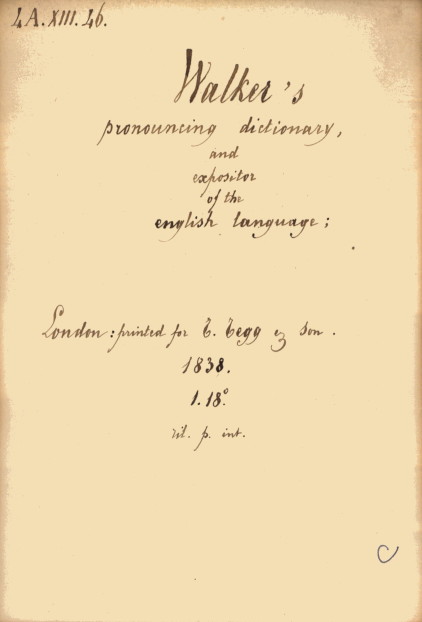 4A.XIII.46.
Walker's
pronouncing dictionary,
and
expositor
of the
english language;
London: printed for T. Tegg & Son.
1838.
1.18°.
ril. p. int.
C